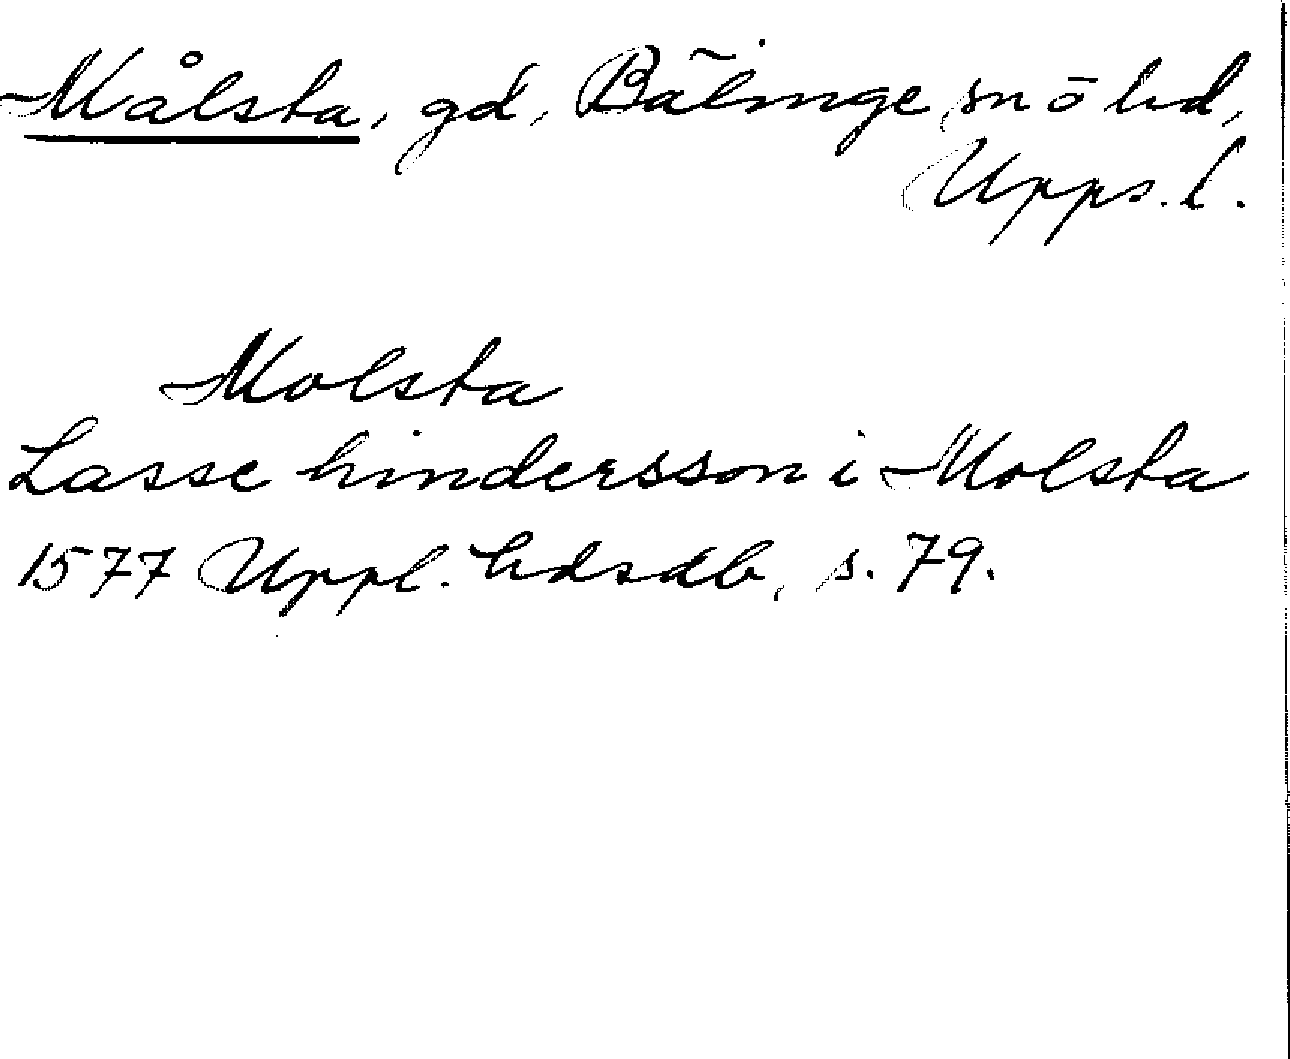 Målsta, gd, Bälinge sn o hd,
Upps. l.
Molsta
Lasse hindersson i Molsta
1577 Uppl. hdsdb, s. 79.